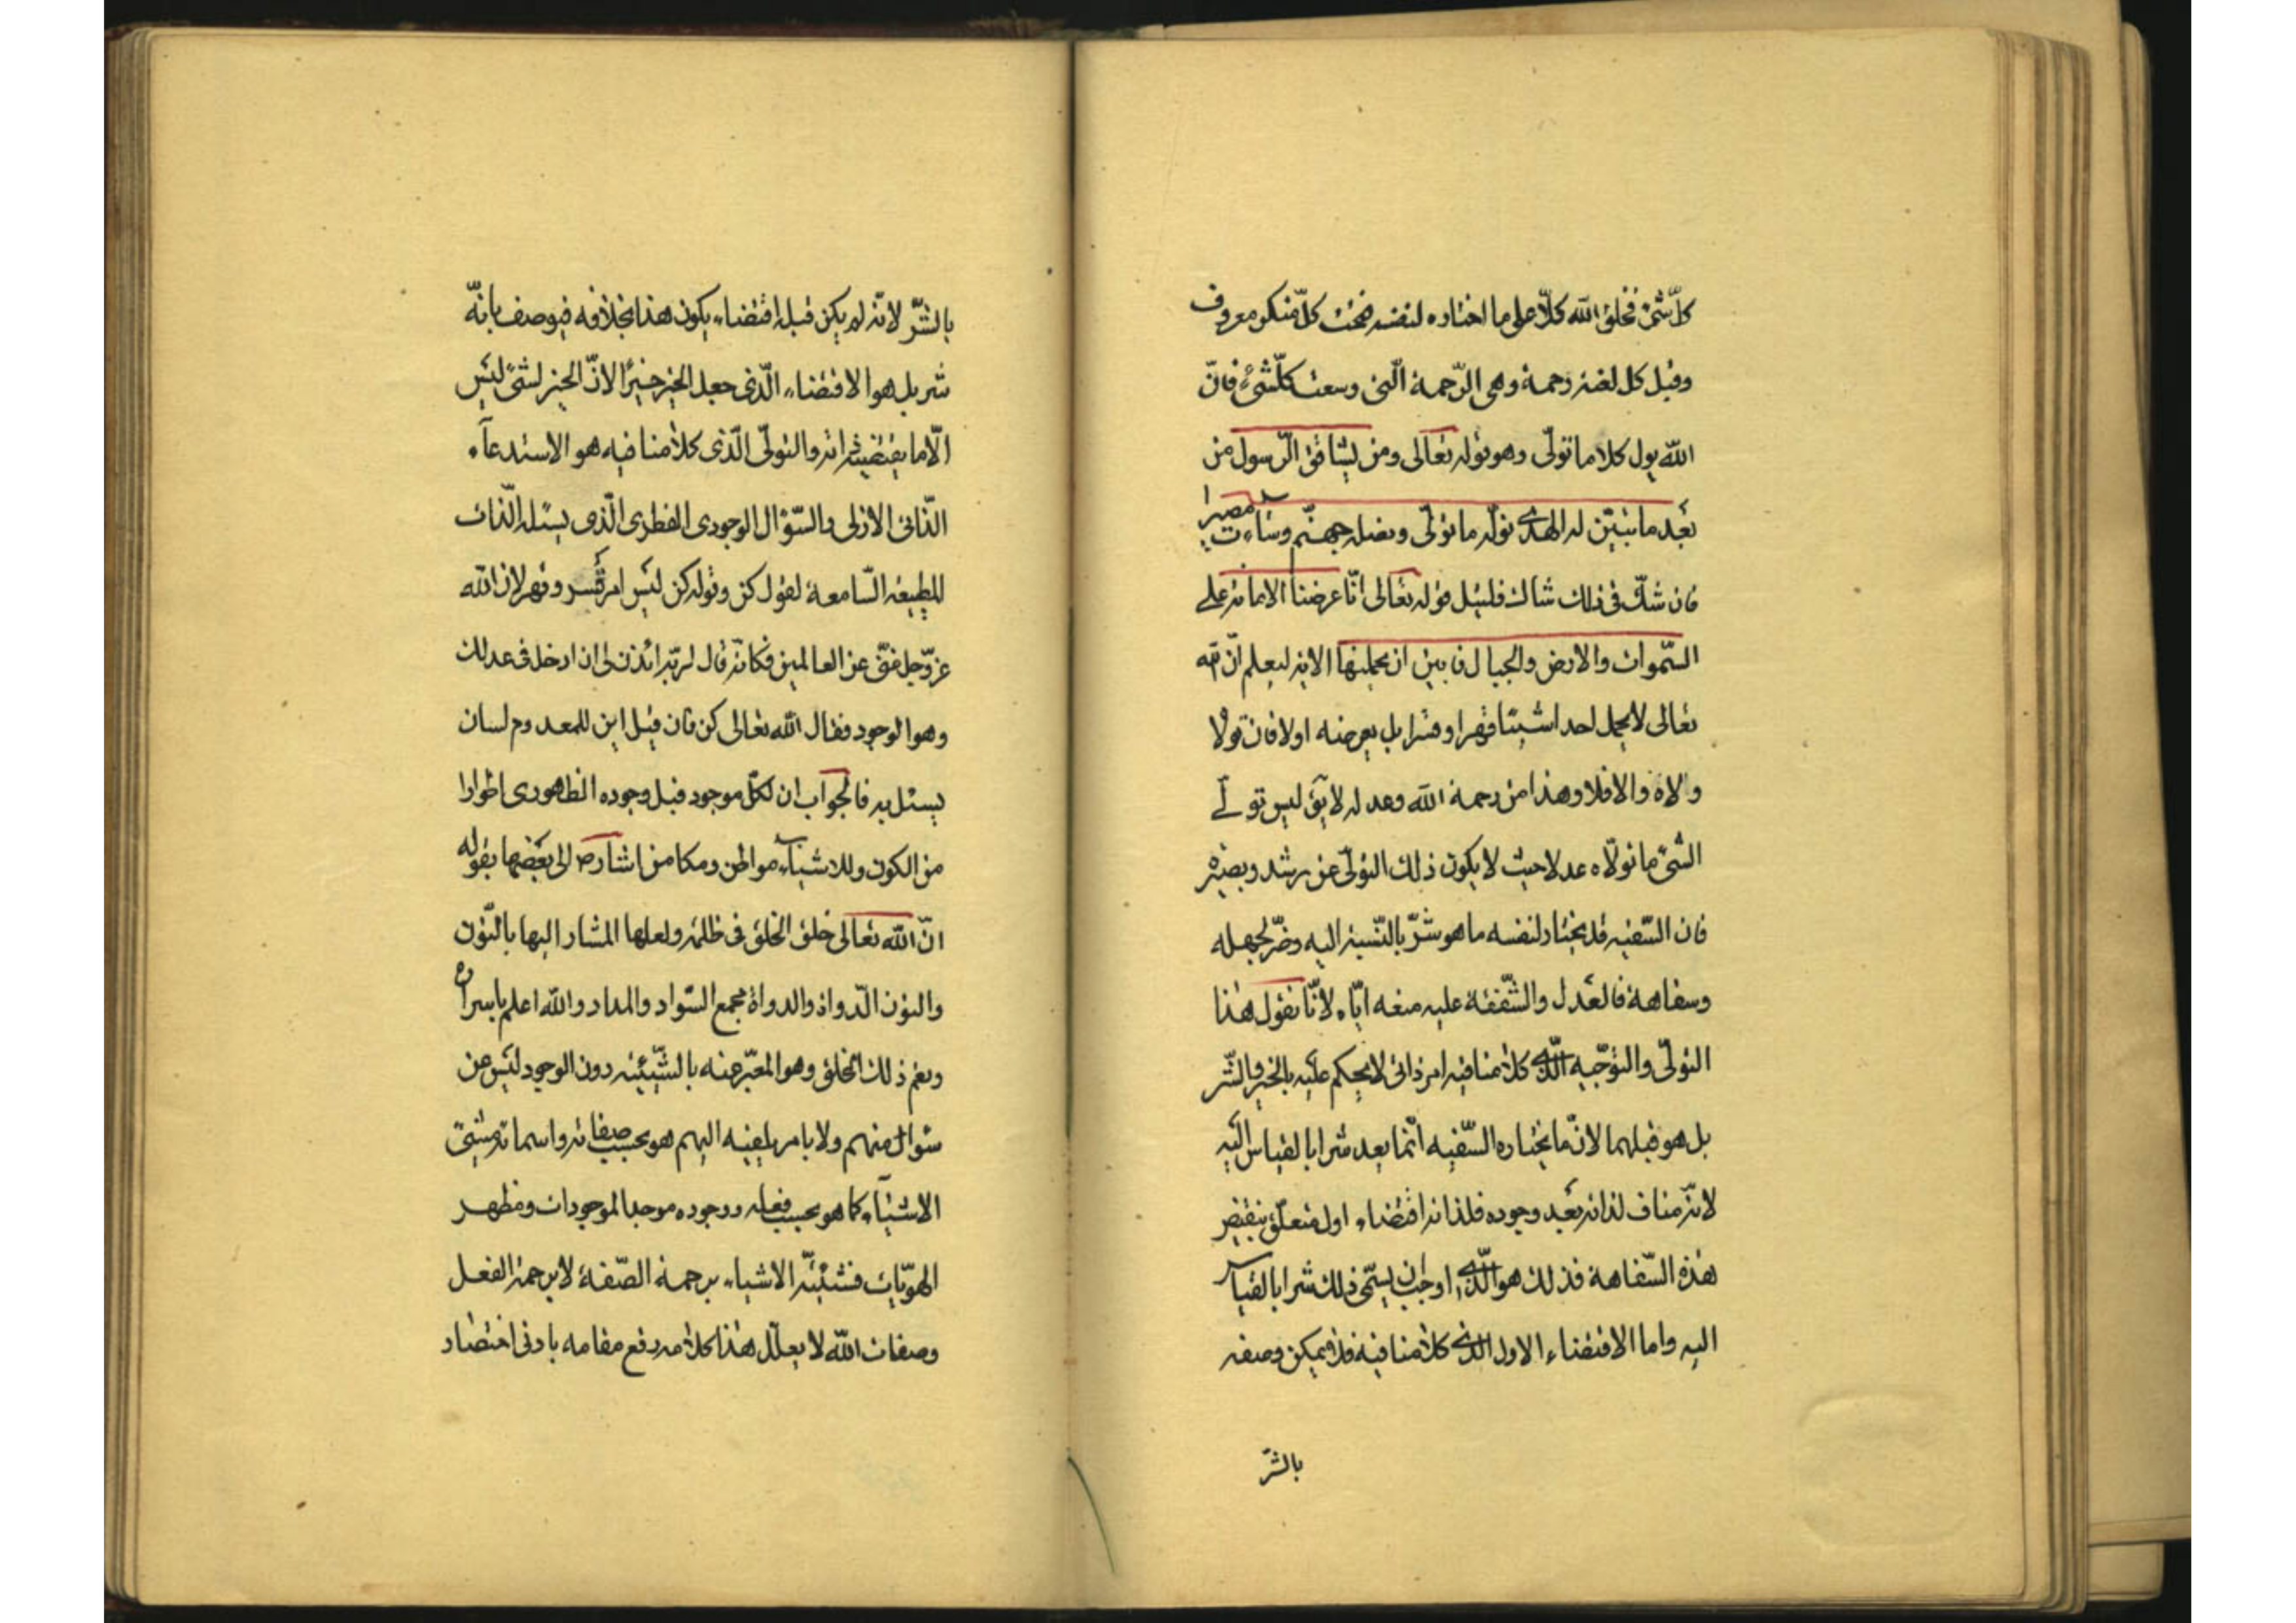 كلّ شئ فخلق الله كلّا على ما اختاره لنفسه فتحت كلّ منكر معروف
وقبل كل لعنة رحمة وهى الرّحمة الّتى وسعت كلّ شئ فانّ
الله يول كلا ما تولّى وهو قوله تعالى ومن يشاقق الرّسول من
بعد ما تبيّن له الهدى نولّه ما تولّى ونصله جهنّم وساءت مصيرا
فان شكّ فى ذلك شاك فليتل قوله تعالى انّا عرضنا الامانة على
السّموات والارض والجبال فابين ان يحملنها الاية ليعلم انّ الله
تعالى لا يحمل احدا شيئا قهرا وقسرا بل يعرضه اولا فان تولّا
ولاه والا فلا وهذا من رحمة الله وعدله لا يق ليس تولّى
الشئ ما تولّاه عدلا حيث لا يكون ذلك التولّى عن رشد وبصيرة
فان السّفيه قد يختار لنفسه ما هو شرّ بالنّسبة اليه وضرّ لجهله
وسفاهة فالعدل والشّفقة عليه منعه ايّاه لانّا نقول هذا
التولّى والتوجّه الّذى كلامنا فيه امر ذاتى لا يحكم عليه بالخير والشّر
بل هو قبلهما لانّ ما يختاره السّفيه انّما يعد شرا بالقياس اليه
لانّه مناف لذاته بعد وجوده فلذاته اقتضاء اول متعلّق بنقيض
هذه السّفاهة فذلك هو الّذى اوجب ان يسمّى ذلك شرا بالقياس
اليه واما الاقتضاء الاول الذى كلامنا فيه فلا يمكن وصفه
بالشرّ
بالشرّ لانّه لم يكن قبله اقتضاء يكون هذا بخلافه فيوصف بانّه
شر بل هو الاقتضاء الّذى جعل الخير خيرًا لانّ الخير لشئ ليس
الّا ما يقتضيه ذاته والتولّى الّذى كلامنا فيه هو الاستدعاء
الذّاتى الازلى والسّؤال الوجودى الفطرى الّذى يسئله الذّات
المطيعة السّامعة لقول كن وقوله كن ليس امر قسر وقهر لان الله
عزّ وجل غنىّ عن العالمين فكانّه قال لربّه ائذن لى ان ادخل فى عدلك
وهو الوجود فقال الله تعالى كن فان قيل اين للمعدوم لسان
يسئل به فالجواب ان لكلّ موجود قبل وجوده الظاهورى اطوارا
من الكون وللاشياء مواطن ومكامن اشار ص الى بعضها بقوله
انّ الله تعالى خلق الخلق فى ظلمة ولعلها المشار اليها بالنّون
والنون الدّواة والدواة مجمع السّواد والمداد والله اعلم باسراره
ونعم ذلك الخلق وهو المعبّر عنه بالشّيئيّة دون الوجود ليس عن
سؤال منهم ولا بامر يلقيه اليهم هو بحسب صفاته واسمائه مشيّئ
الاشياء كما هو بحسب فعله ووجوده موجد الموجودات ومظهر
الهويّات فشيئيّة الاشياء برحمة الصّفة لا برحمة الفعل
وصفات الله لا يعلّل هذا كلامه رفع مقامه بادنى اختصار